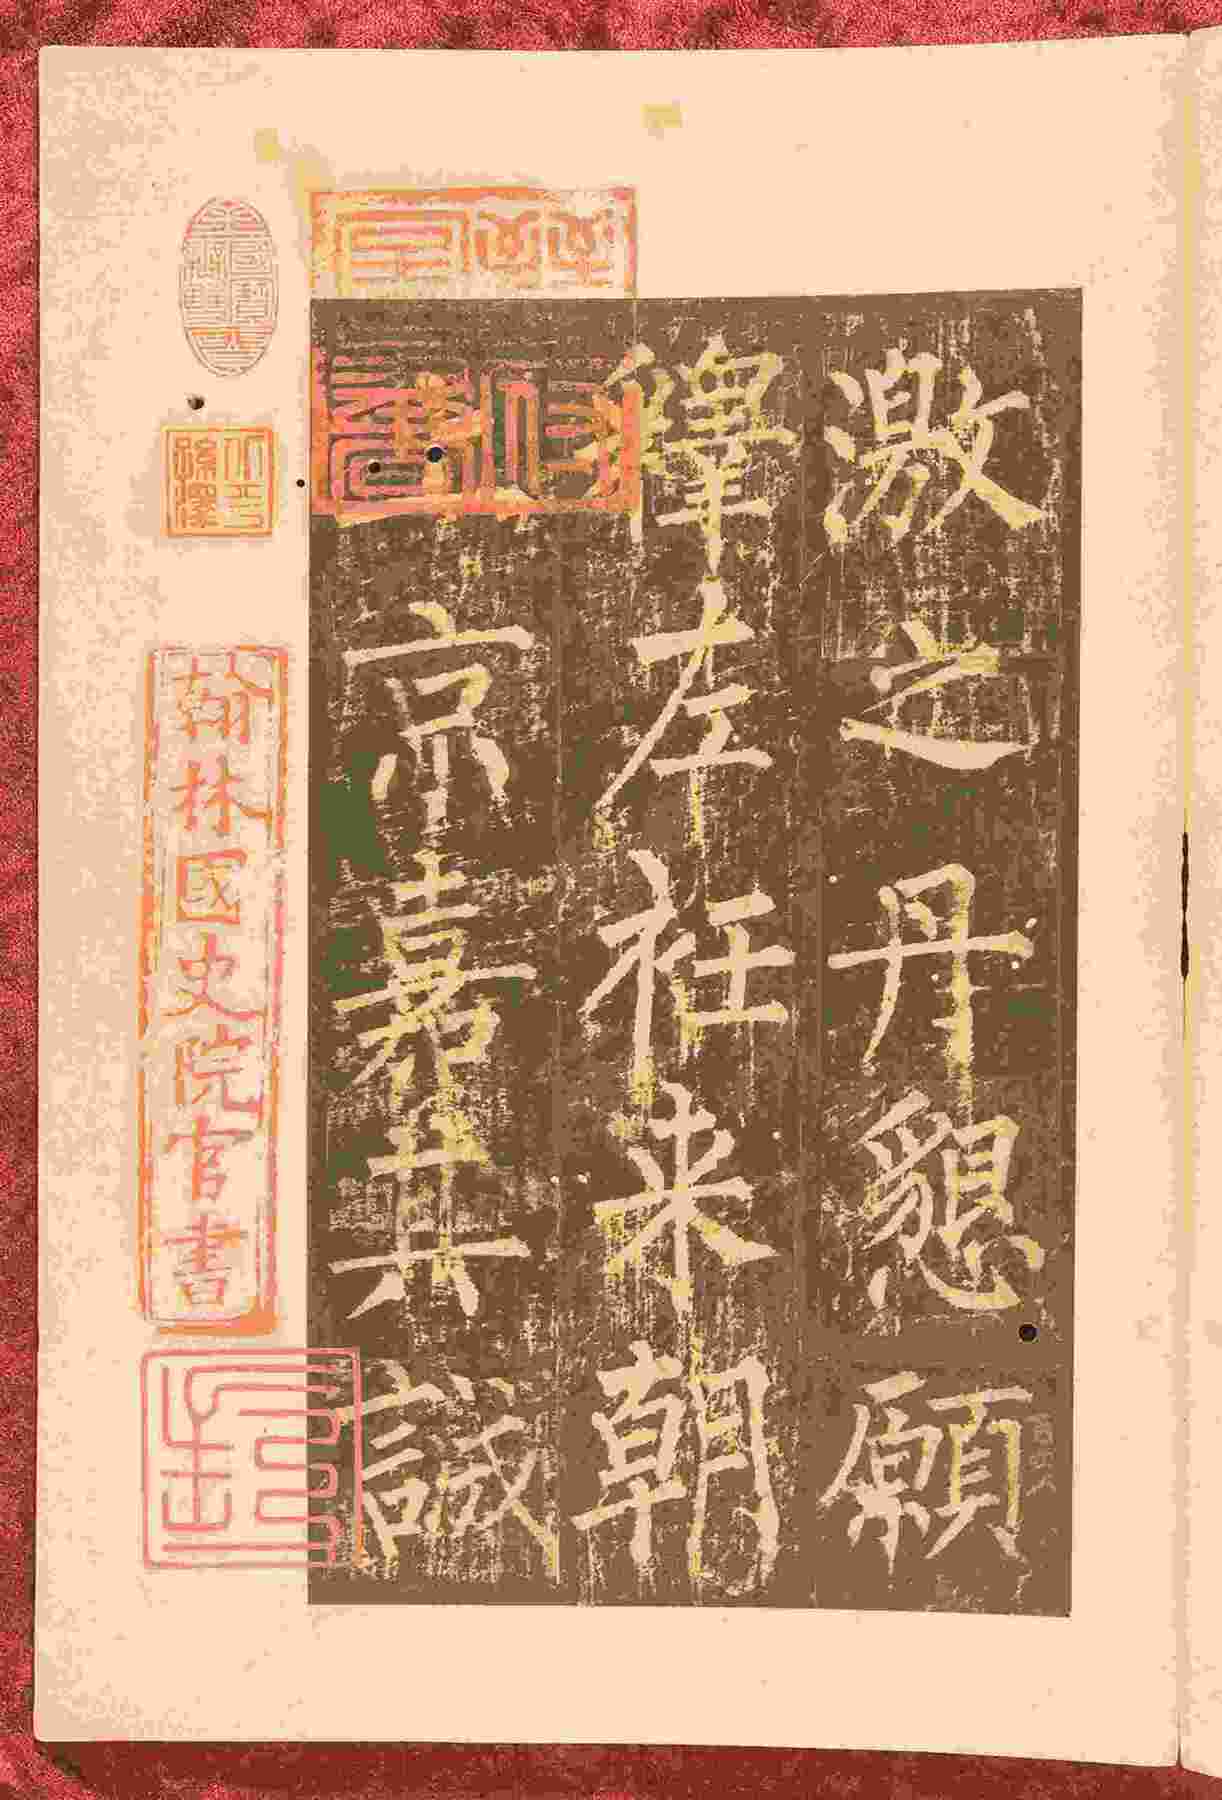 激之丹懇願
釋左衽来朝
上京嘉其誠
翰林國史院官書